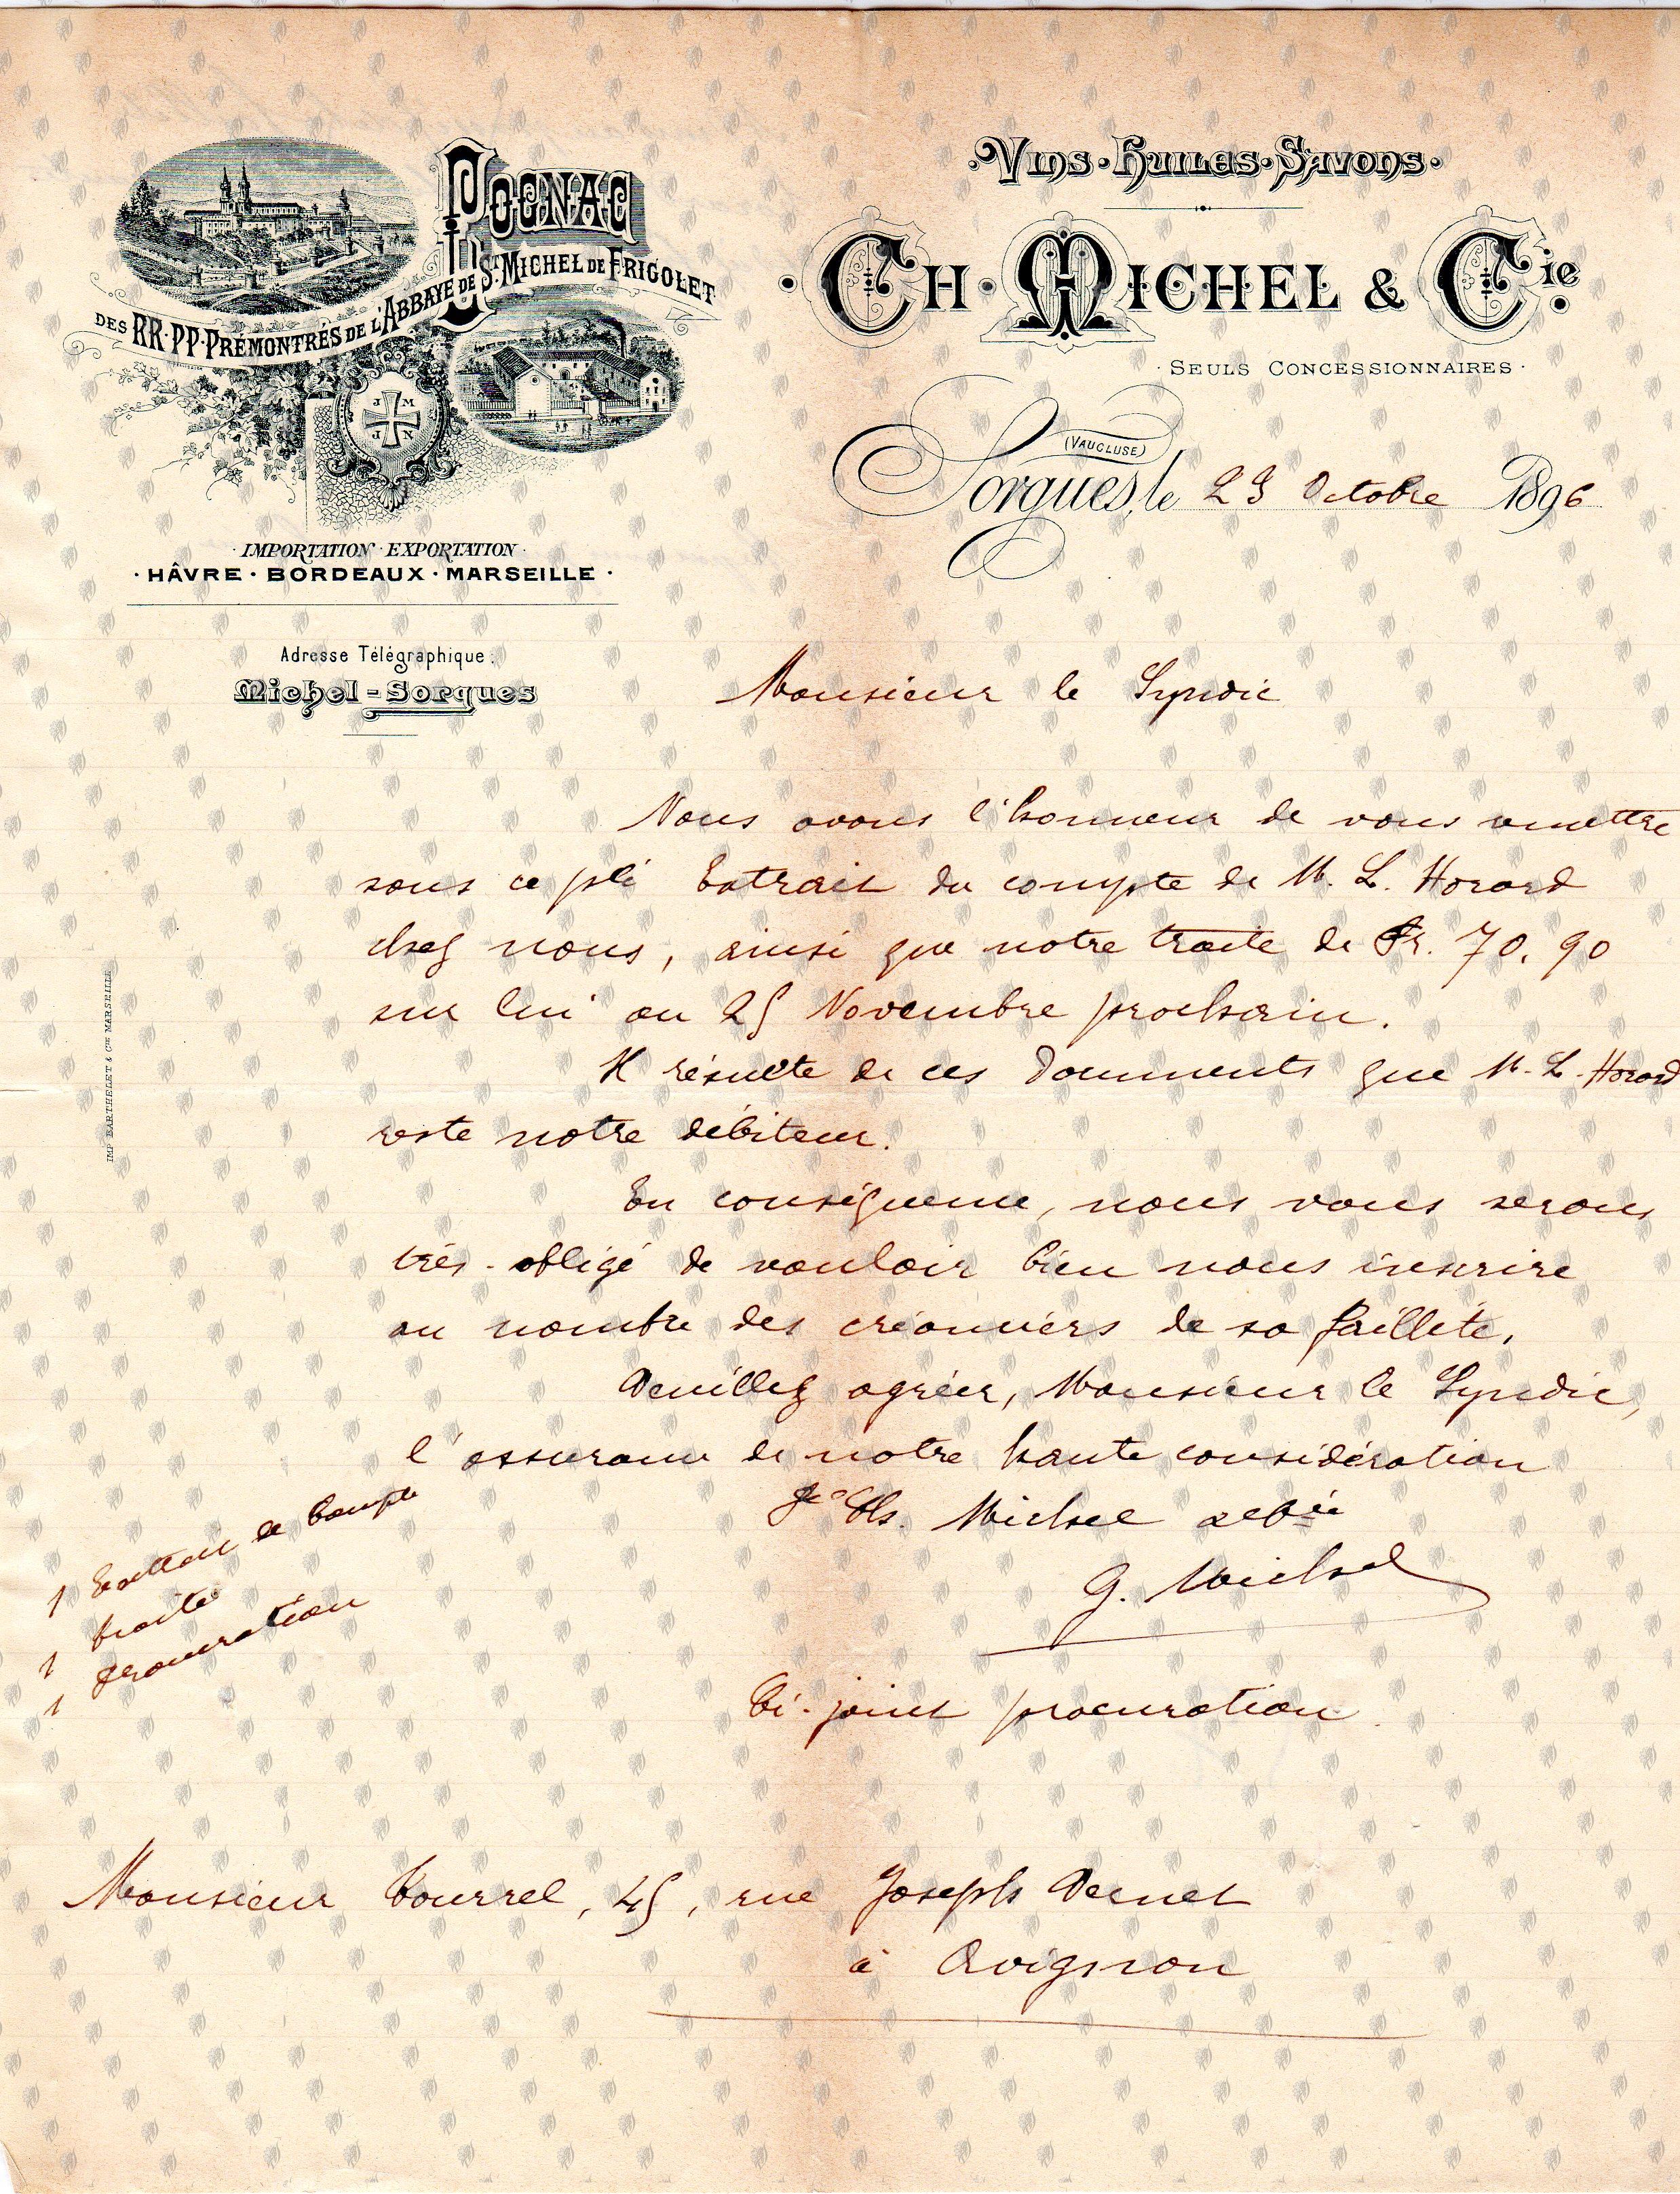 POGNAC
DES RR·PP·PRÉMONTRÉS DE L'ABBAYE DE ST MICHEL DE FRIGOLET
J M
J N
· IMPORTATION · EXPORTATION ·
· HÂVRE · BORDEAUX · MARSEILLE ·
Adresse Télégraphique:
Michel - Sorgues
· VINS · HUILES · SAVONS ·
· CH · MICHEL & Cie ·
· SEULS CONCESSIONNAIRES ·
(VAUCLUSE)
Sorgues, le 23 Octobre 1896
Monsieur le Syndic
Nous avons l'honneur de vous remettre
sous ce pli Extrait du compte de M. L. Horard
chez nous, ainsi que notre traite de Fr. 70,90
sur lui au 25 Novembre prochain.
Il résulte de ces documents que M. L. Horard
reste notre débiteur.
En conséquence, nous vous serons
très-obligé de vouloir bien nous inscrire
au nombre des créanciers de sa faillite.
Veuillez agréer, Monsieur le Syndic,
l'assurance de notre haute considération
Pon Ch. Michel & Cie
G. Michel
1 Extrait de Compte
1 traite
1 procuration
Ci-joint procuration
Monsieur Bourrel, 45, rue Joseph Vernet
à Avignon
IMP. BARTHELET & Cie MARSEILLE